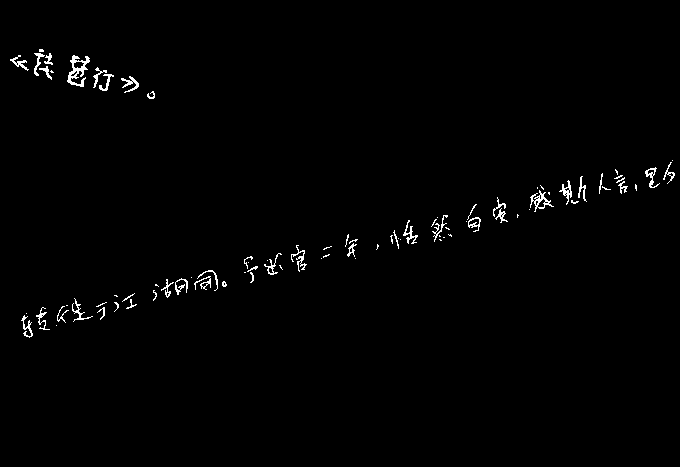 《琵琶行》。
转徙于江湖间。予出官二年，恬然自安，感斯人言，是夕